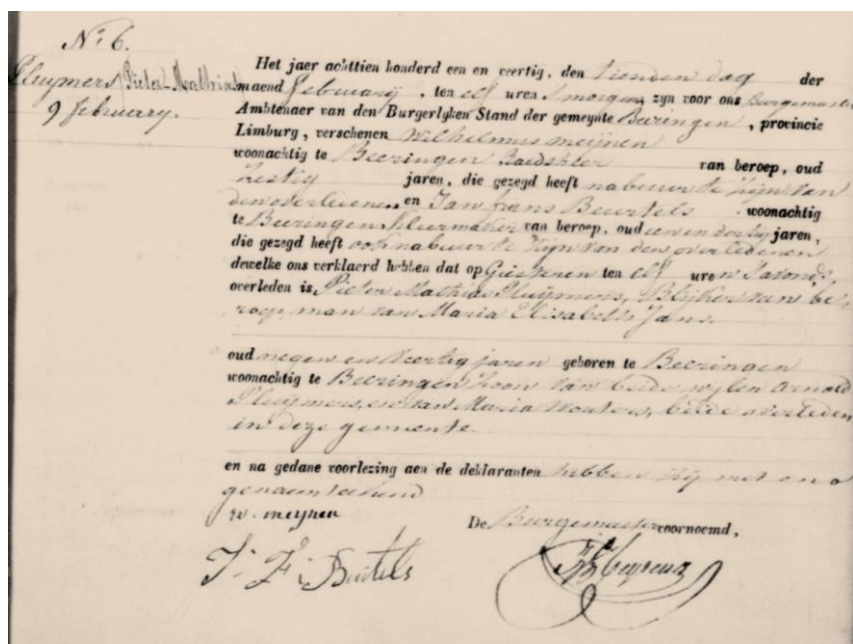 N.º 6.
Pluymers Pieter Mathias
9 february.
Het jaer achttien honderd een en veertig, den tienden dag der
maend february, ten elf uren s'morgens zyn voor ons Burgemeester
Ambtenaer van den Burgerlyken Stand der gemeynte Beeringen, provincie
Limburg, verschenen Wilhelmus meijnen
woonachtig te Beeringen van beroep, oud
zestig jaren, die gezegd heeft nabuur te zijn van
den overledenen en Jan frans Beurtels woonachtig
te Beeringen kleermaker van beroep, oud een en dertig jaren,
die gezegd heeft ook nabuur te zijn van den overledenen
dewelke ons verklaerd hebben dat op Gisteren ten elf uren s'avonds
overleden is Pieter Mathias Pluijmers, van be-
roep, man van Maria Elisabeth Jans.
oud negen en veertig jaren geboren te Beeringen
woonachtig te Beeringen zoon van beide wijlen Arnold
Pluijmers, en van Maria Wouters, beide overleden
in deze gemeente.
en na gedane voorlezing aen de deklaranten hebben zij met ons
genaamteekend
W. meijnen
De Burgemeester voornoemd,
J. F. Beurtels